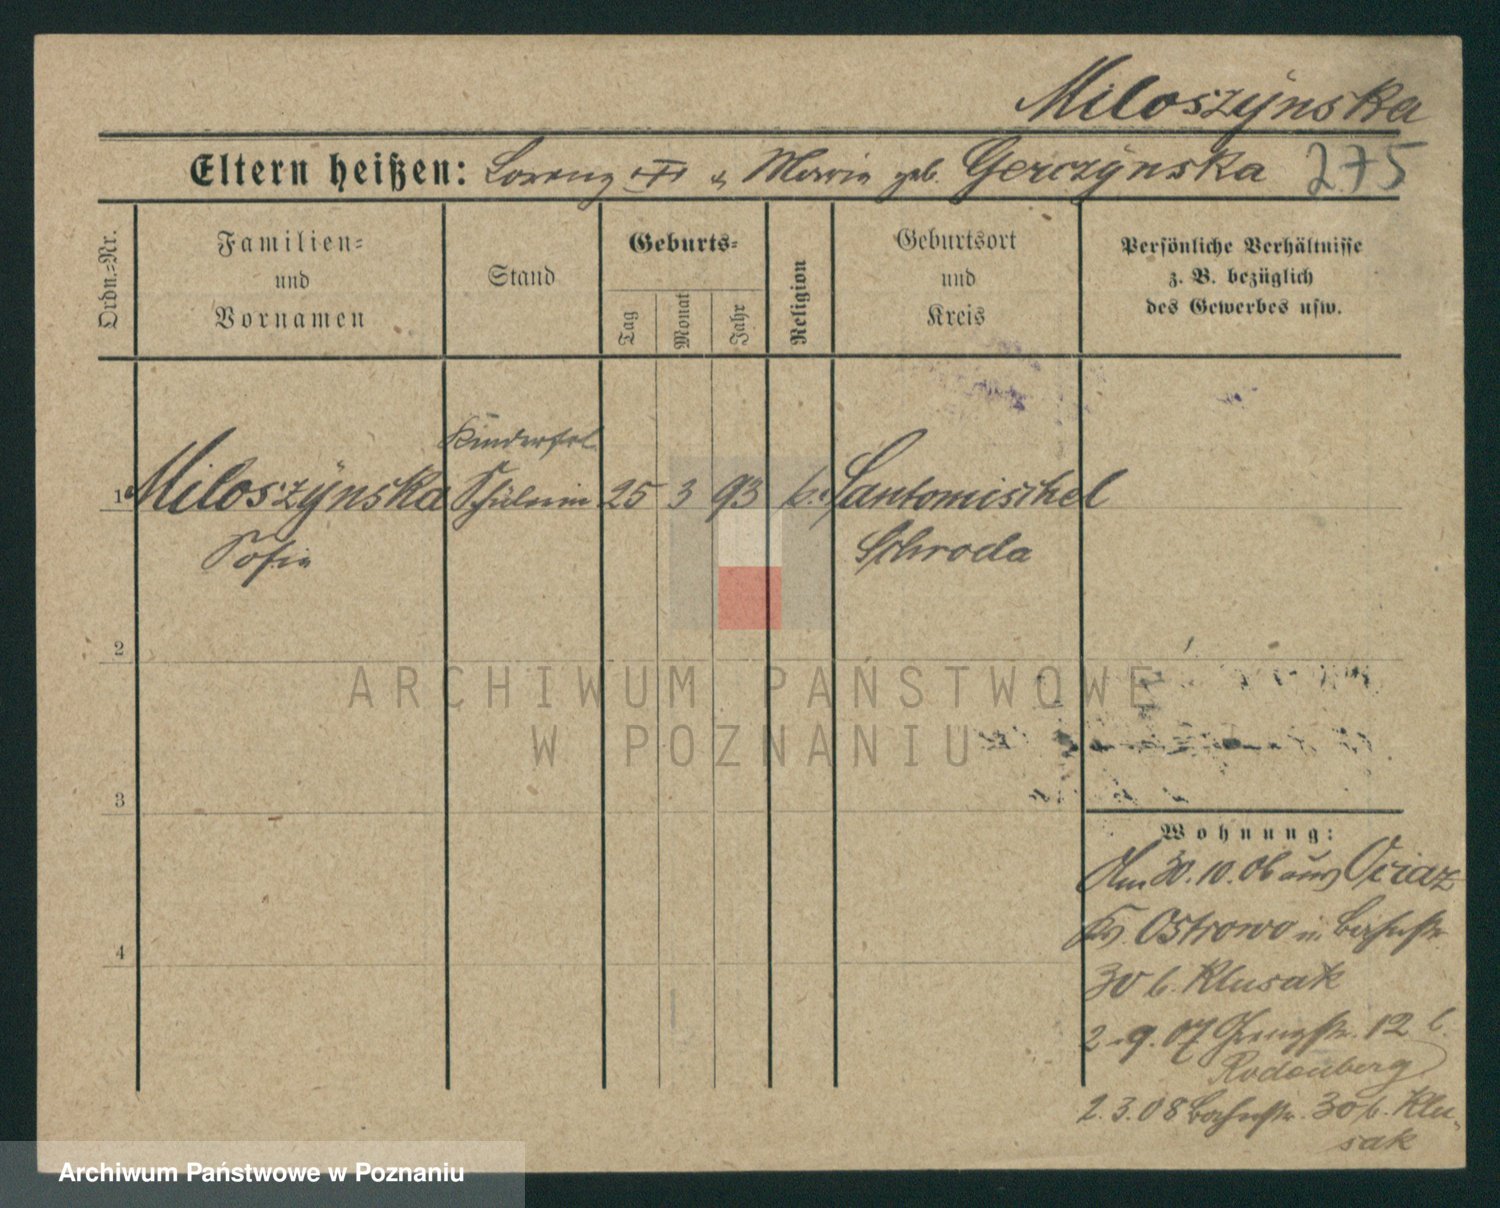 Miloszÿnska
Eltern heißen: Lorenz u Marie geb. Gerczÿnska 275
Ordn.=Nr.
Familien=
und
Vornamen
Stand
Geburts=
Tag
Monat
Jahr
Religion
Geburtsort
und
Kreis
Persönliche Verhältnisse
z. B. bezüglich
des Gewerbes usw.
Kinderfrl
1 Miloszÿnska Schülerin 25 3 93 k. Santomischel
Sofie Schroda
2
ARCHIWUM PAŃSTWOWE
W POZNANIU
3
Wohnung:
Am 30.10.06 aus Ociaz
Kr. Ostrowo n. Bahnstr
4
30 b. Klusak
2.9.07 12 b.
Rodenberg
2.3.08 Bahnstr. 30 b. Klu-
sak
Archiwum Państwowe w Poznaniu